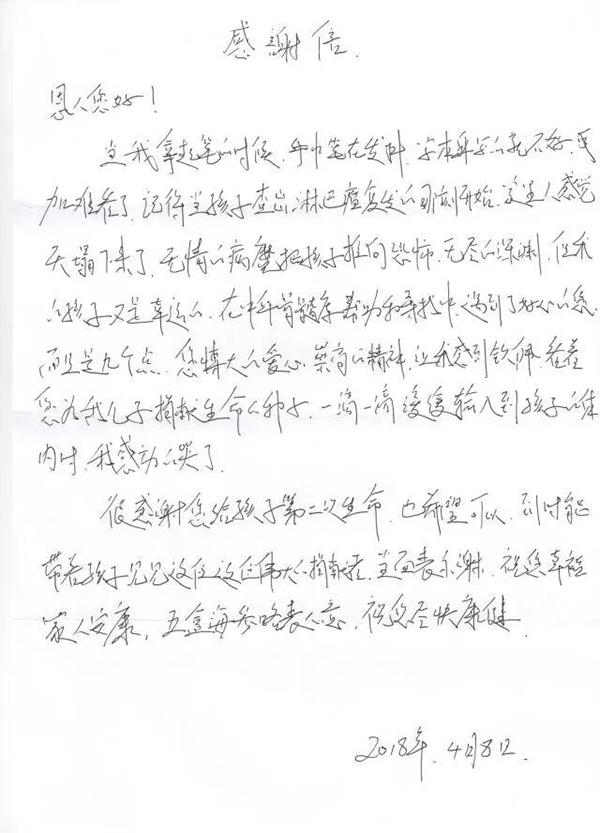 感謝信
恩人您好!
当我拿起笔的时候,手中笔在发抖,字本来写的就不好,更
加难看了,记得当孩子查出淋巴瘤复发的那刻开始,家里人感觉
天塌下来了,无情的病魔把孩子推向恐怖,无尽的深渊,但我
的孩子又是幸运的,在中华骨髓库帮助和寻找中,遇到了好心的您,
而且是九个点,您博大的爱心,崇高的精神,让我感到钦佩,看着
您为我儿子捐献生命的种子,一滴一滴缓缓输入到孩子的体
内时,我感动的哭了。
很感谢您给孩子第二次生命,也希望可以,到时能
带着孩子见见这位这位伟大的捐献者,当面表示谢谢,祝您幸福
家人安康,五盒海参略表心意,祝您尽快康健。
2018年.4月8日.